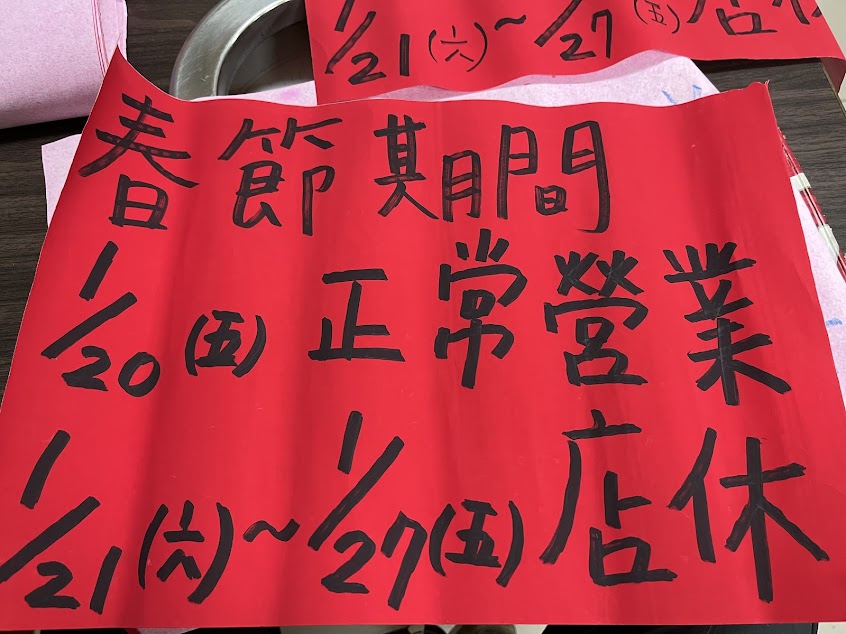 1/21(六)~1/27(五)店休
春節期間
1/20(五)正常營業
1/21(六)~1/27(五)店休